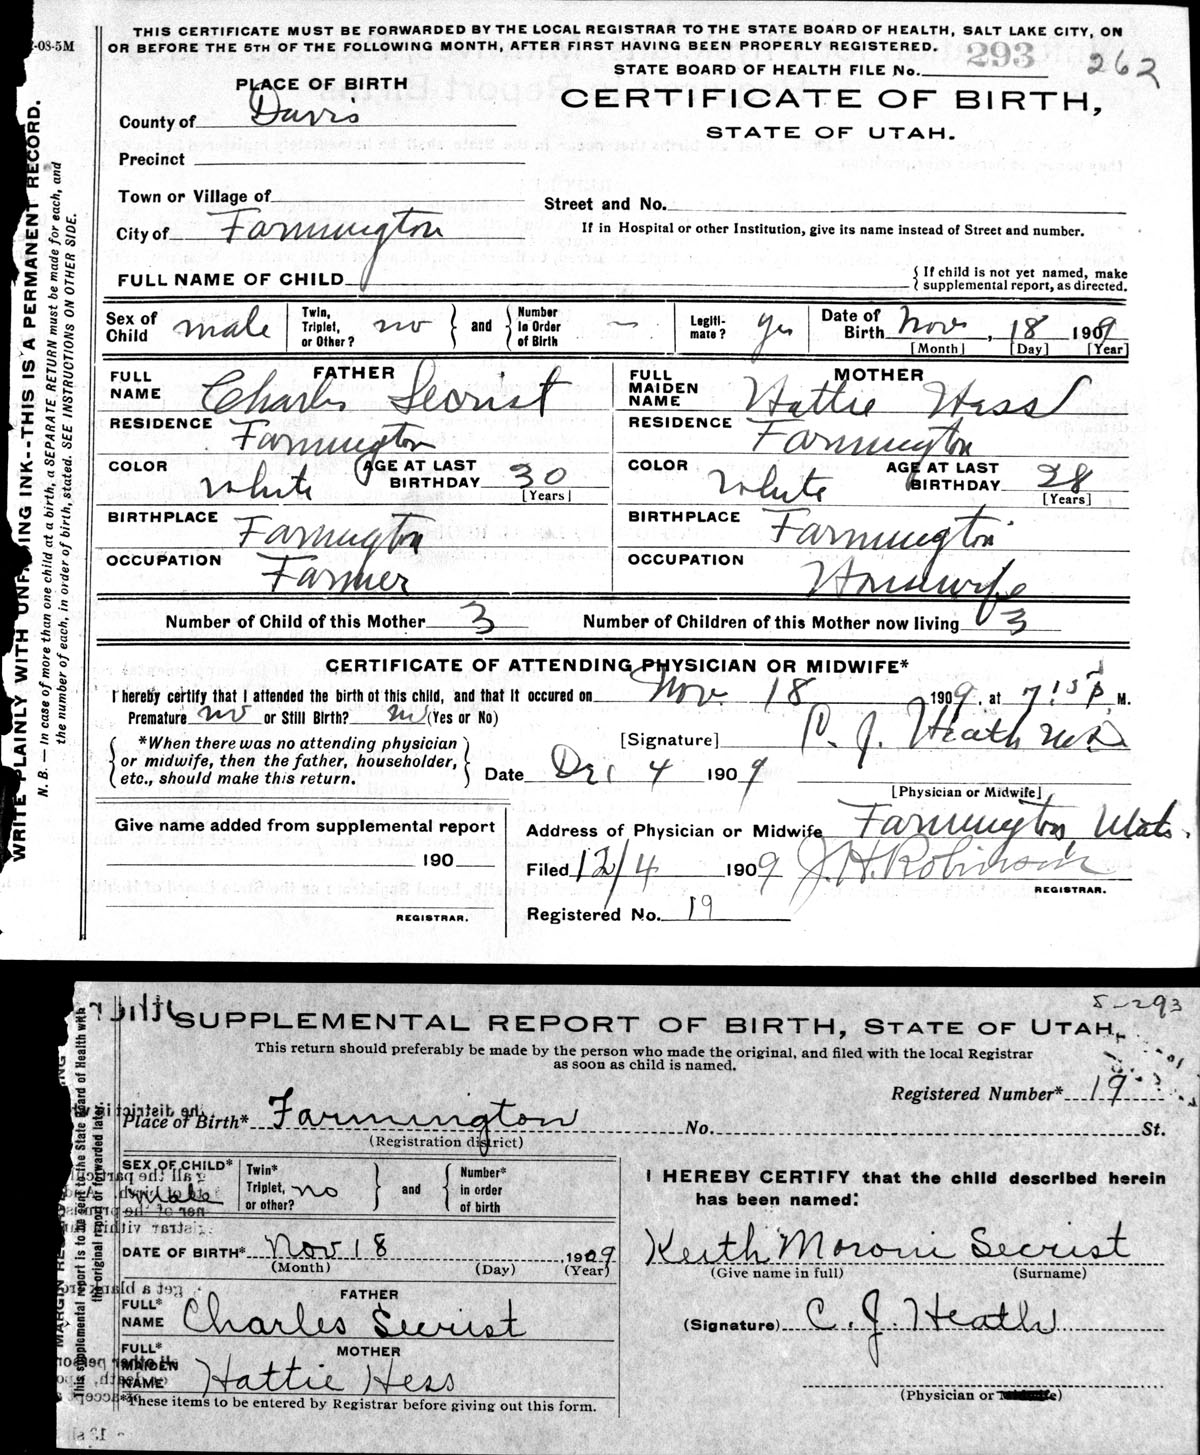 THIS CERTIFICATE MUST BE FORWARDED BY THE LOCAL REGISTRAR TO THE STATE BOARD OF HEALTH, SALT LAKE CITY, ON
OR BEFORE THE 5TH OF THE FOLLOWING MONTH, AFTER FIRST HAVING BEEN PROPERLY REGISTERED.
-08-5M
STATE BOARD OF HEALTH FILE No. 293 262
PLACE OF BIRTH
CERTIFICATE OF BIRTH,
STATE OF UTAH.
County of Davis
Precinct
Town or Village of
Street and No.
City of Farmington
If in Hospital or other Institution, give its name instead of Street and number.
FULL NAME OF CHILD
{ If child is not yet named, make
supplemental report, as directed.
Sex of Child male Twin, Triplet, or Other? no } and { Number in Order of Birth — Legiti-mate? yes Date of Birth Nov, 18 1909
[Month] [Day] [Year]
FATHER
FULL NAME Charles Secrist
RESIDENCE Farmington
COLOR White AGE AT LAST BIRTHDAY 30
[Years]
BIRTHPLACE Farmington
OCCUPATION Farmer
MOTHER
FULL MAIDEN NAME Hattie Hess
RESIDENCE Farmington
COLOR White AGE AT LAST BIRTHDAY 28
[Years]
BIRTHPLACE Farmington
OCCUPATION Housewife
Number of Child of this Mother 3 Number of Children of this Mother now living 3
CERTIFICATE OF ATTENDING PHYSICIAN OR MIDWIFE*
I hereby certify that I attended the birth of this child, and that it occured on Nov. 18 1909, at 7 15 P. M.
Premature no or Still Birth? no (Yes or No)
[Signature] C. J. Heath M.D.
{ *When there was no attending physician
or midwife, then the father, householder,
etc., should make this return. }
Date Dec 4 1909
[Physician or Midwife]
Give name added from supplemental report
190
REGISTRAR.
Address of Physician or Midwife Farmington, Utah.
Filed 12/4 1909 J. H. Robinson
REGISTRAR.
Registered No. 19
WRITE PLAINLY WITH UNFADING INK--THIS IS A PERMANENT RECORD.
N. B. — In case of more than one child at a birth, a SEPARATE RETURN must be made for each, and
the number of each, in order of birth, stated. SEE INSTRUCTIONS ON OTHER SIDE.
5-293
SUPPLEMENTAL REPORT OF BIRTH, STATE OF UTAH.
This return should preferably be made by the person who made the original, and filed with the local Registrar
as soon as child is named.
Registered Number* 19
Place of Birth* Farmington No. St.
(Registration district)
SEX OF CHILD* Male Twin* Triplet, or other? no } and { Number* in order of birth
DATE OF BIRTH* Nov 18, 1909
(Month) (Day) (Year)
FATHER
FULL* NAME Charles Secrist
MOTHER
FULL* MAIDEN NAME Hattie Hess
*These items to be entered by Registrar before giving out this form.
I HEREBY CERTIFY that the child described herein
has been named:
Keith Moroni Secrist
(Give name in full) (Surname)
(Signature) C. J. Heath
(Physician or
This supplemental report is to be sent to the State Board of Health with
the original report or forwarded later.